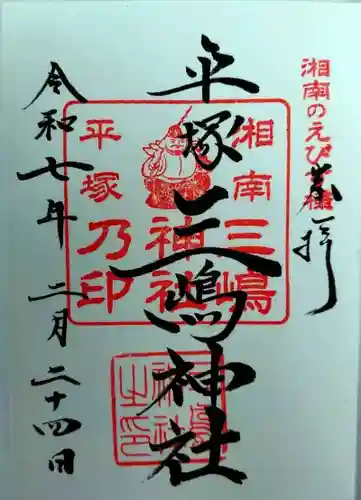 湘南のえびす様
奉拝
平塚三嶋神社
湘南三嶋
神社
平塚乃印
三嶋
神社
之印
令和七年二月二十四日